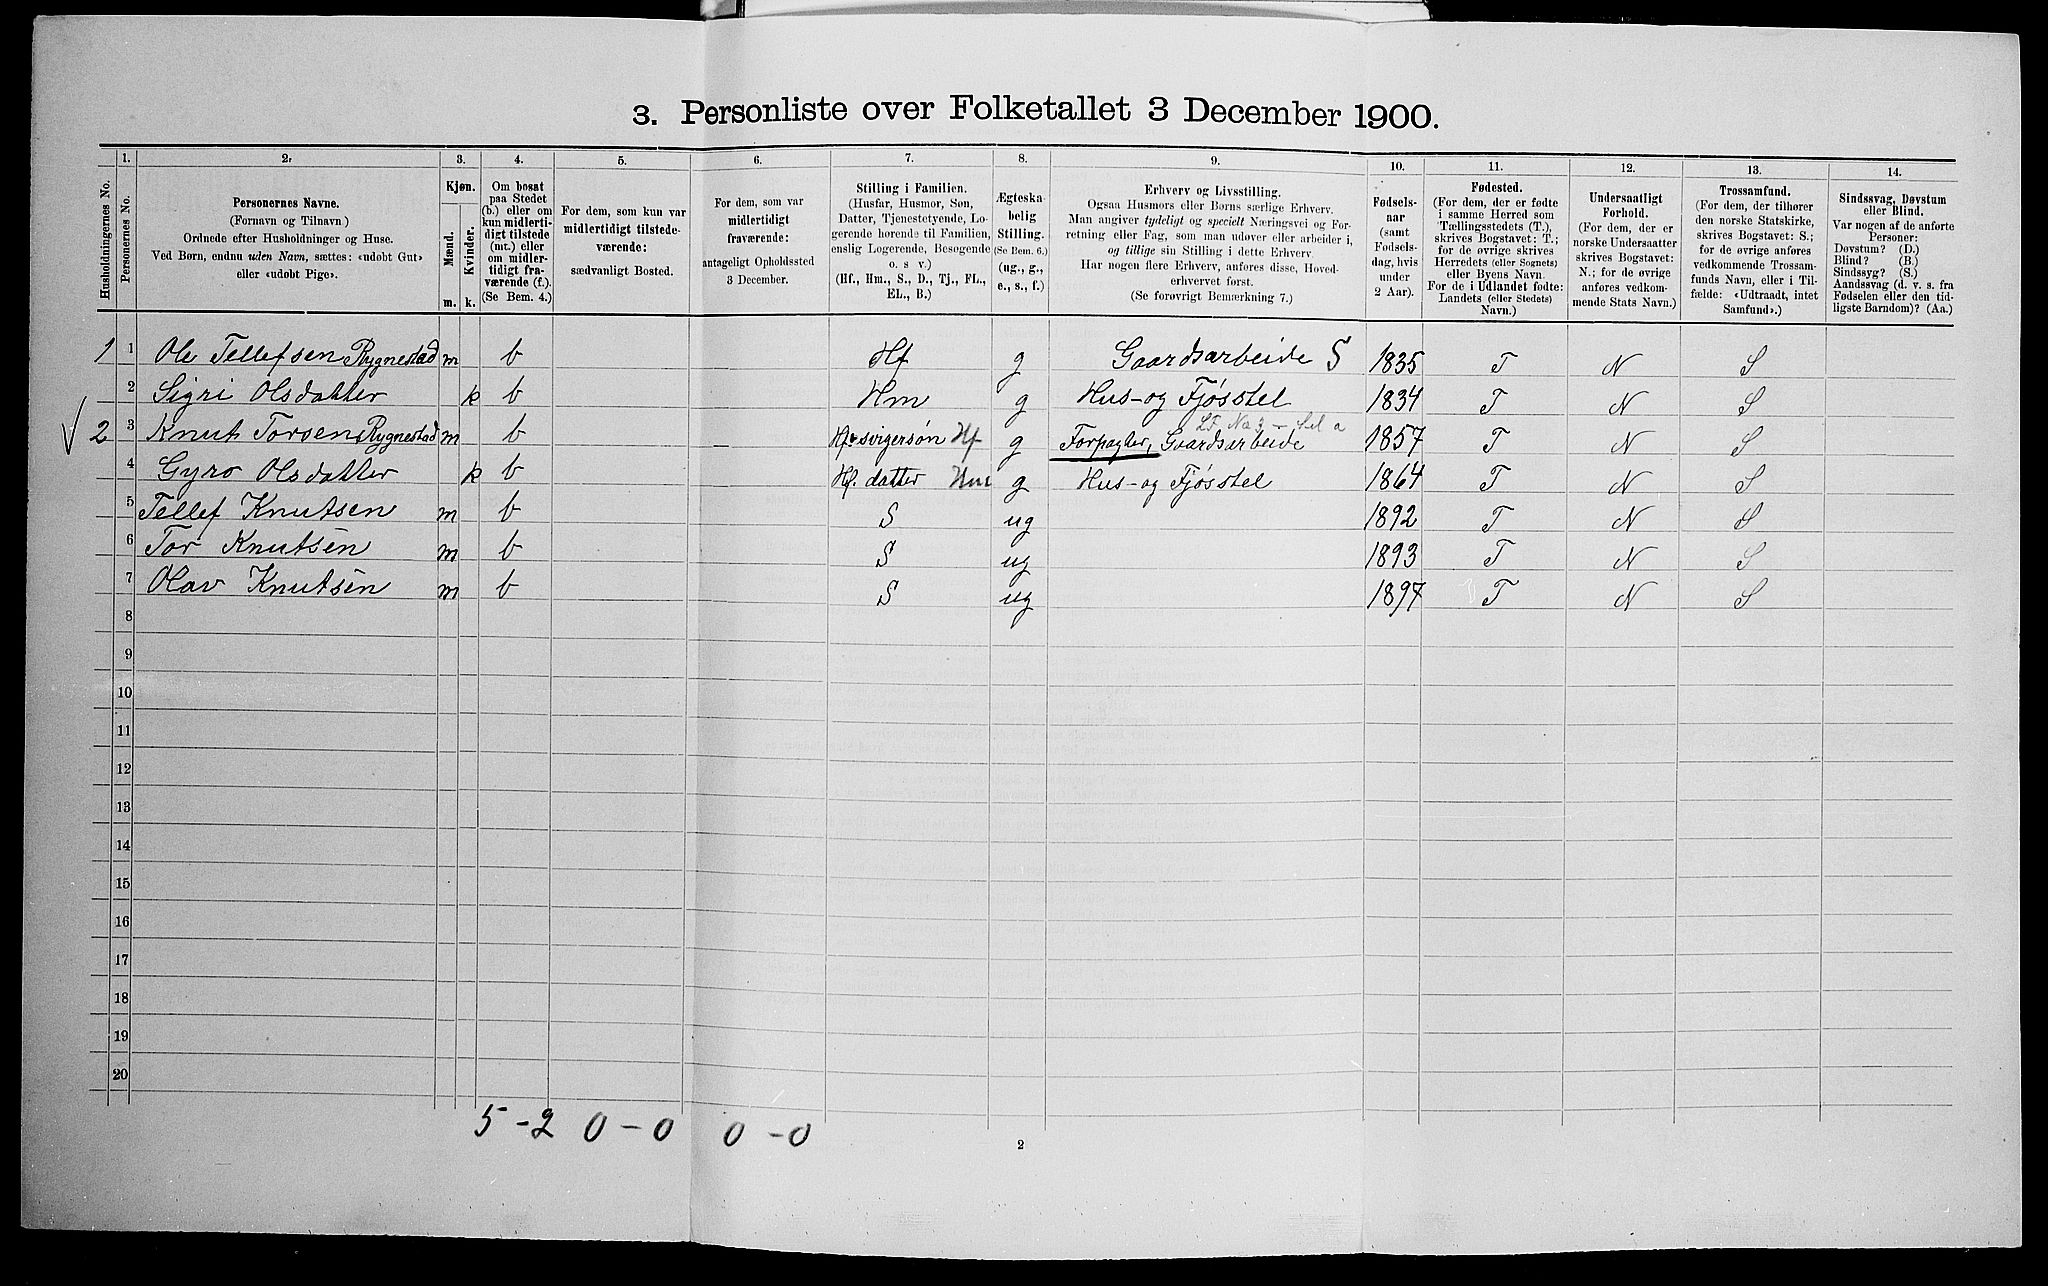 3. Personliste over Folketallet 3 December 1900.
Husholdningernes No.
1.
Personernes No.
2.
Personernes Navne.
(Fornavn og Tilnavn)
Ordnede efter Husholdninger og Huse.
Ved Børn, endnu uden Navn, sættes: «udøbt Gut»
eller «udøbt Pige».
3.
Kjøn.
Mænd.
Kvinder.
m. k.
4.
Om bosat
paa Stedet
(b.) eller om
kun midlerti-
digt tilstede
(mt.) eller
om midler-
tidigt fra-
værende (f.).
(Se Bem. 4.)
5.
For dem, som kun var
midlertidigt tilstede-
værende:
sædvanligt Bosted.
6.
For dem, som var
midlertidigt
fraværende:
antageligt Opholdssted
3 December.
7.
Stilling i Familien.
(Husfar, Husmor, Søn,
Datter, Tjenestetyende, Lo-
gerende hørende til Familien,
enslig Logerende, Besøgende
o. s. v.)
(Hf., Hm., S., D., Tj., FL.,
EL., B.)
8.
Ægteska-
belig
Stilling.
(Se Bem. 6.)
(ug., g.,
e., s., f.)
9.
Erhverv og Livsstilling.
Ogsaa Husmors eller Børns særlige Erhverv.
Man angiver tydeligt og specielt Næringsvei og For-
retning eller Fag, som man udøver eller arbeider i,
og tillige sin Stilling i dette Erhverv.
Har nogen flere Erhverv, anføres disse, Hoved-
erhvervet først.
(Se forøvrigt Bemærkning 7.)
10.
Fødsels-
aar
(samt
Fødsels-
dag, hvis
under
2 Aar).
11.
Fødested.
(For dem, der er fødte
i samme Herred som
Tællingsstedets (T.),
skrives Bogstavet: T.;
for de øvrige skrives
Herredets (eller Sognets)
eller Byens Navn.
For de i Udlandet fødte:
Landets (eller Stedets)
Navn.)
12.
Undersaatligt
Forhold.
(For dem, der er
norske Undersaatter
skrives Bogstavet:
N.; for de øvrige
anføres vedkom-
mende Stats Navn.)
13.
Trossamfund.
(For dem, der tilhører
den norske Statskirke,
skrives Bogstavet: S.;
for de øvrige anføres
vedkommende Trossam-
funds Navn, eller i Til-
fælde: «Udtraadt, intet
Samfund».)
14.
Sindssvag, Døvstum
eller Blind.
Var nogen af de anførte
Personer:
Døvstum? (D.)
Blind? (B.)
Sindssyg? (S.)
Aandssvag (d. v. s. fra
Fødselen eller den tid-
ligste Barndom)? (Aa.)
1 1 Ole Tellefsen Rygnestad m b Hf g Gaardsarbeide S 1835 T N S
2 Sigri Olsdatter k b Hm g Hus- og Fjøsstel 1834 T N S
√ 2 3 Knut Torsen Rygnestad m b Hf svigersøn Hf g Forpagter, Gaardsarbeide 1857 T N S
4 Gyro Olsdatter k b Hf. datter Hm g Hus- og Fjøsstel 1864 T N S
5 Tellef Knutsen m b S ug 1892 T N S
6 Tor Knutsen m b S ug 1893 T N S
7 Olav Knutsen m b S ug 1897 T N S
8
9
10
11
12
13
14
15
16
17
18
19
20
5 - 2 0 - 0 0 - 0
2